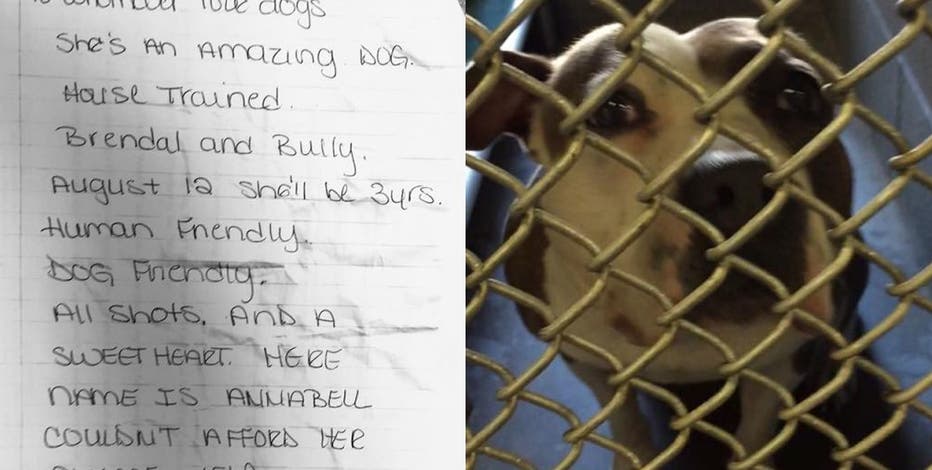 dogs
She's An Amazing DOG.
House Trained.
Brendal and Bully.
August 12 she'll be 3yrs.
Human Friendly.
DOG Friendly.
All shots. AND A
SWEET HEART. HERE
NAME IS ANNABELL
COULDN'T AFFORD HER